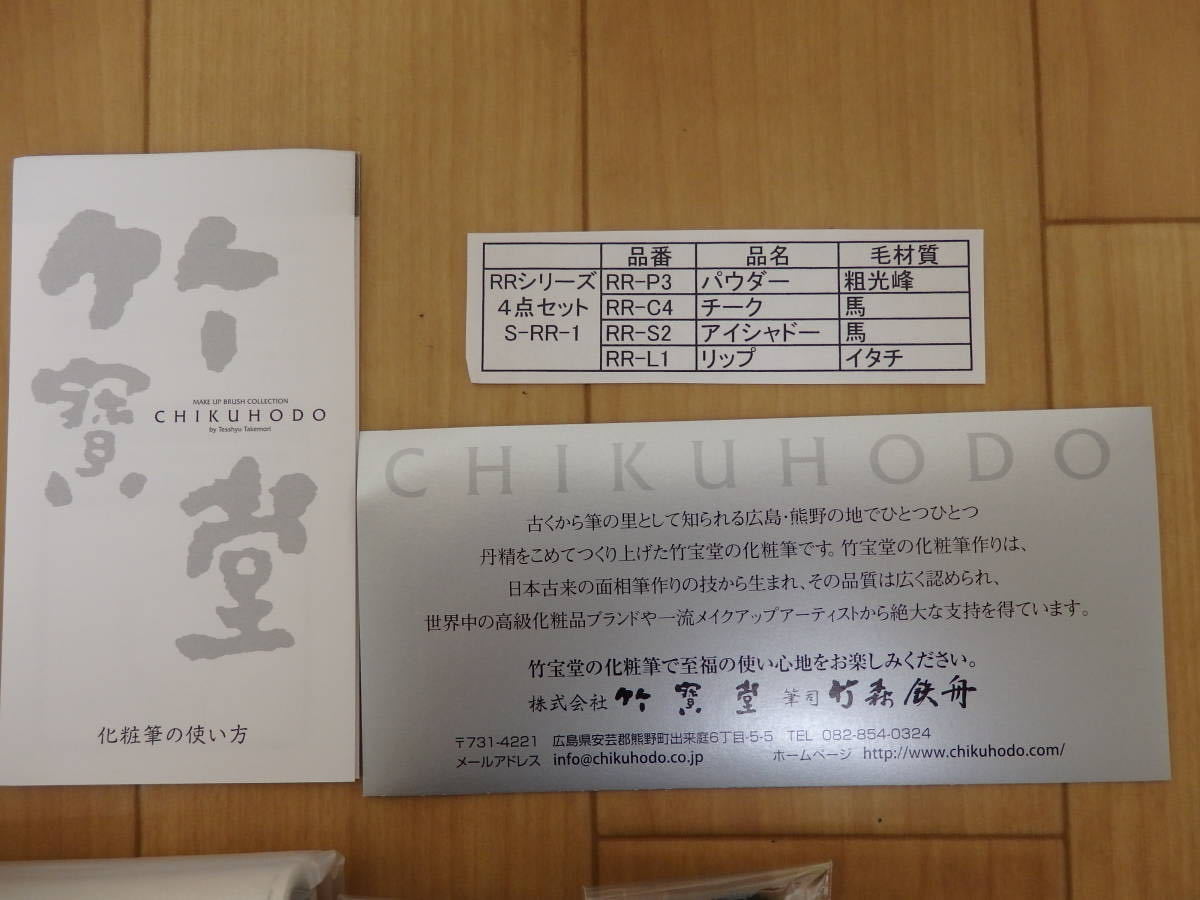 竹寶堂
MAKE UP BRUSH COLLECTION
CHIKUHODO
by Tesshyu Takemori
化粧筆の使い方
品番 品名 毛材質
RRシリーズ RR-P3 パウダー 粗光峰
4点セット RR-C4 チーク 馬
S-RR-1 RR-S2 アイシャドー 馬
RR-L1 リップ イタチ
CHIKUHODO
古くから筆の里として知られる広島・熊野の地でひとつひとつ
丹精をこめてつくり上げた竹宝堂の化粧筆です。竹宝堂の化粧筆作りは、
日本古来の面相筆作りの技から生まれ、その品質は広く認められ、
世界中の高級化粧品ブランドや一流メイクアップアーティストから絶大な支持を得ています。
竹宝堂の化粧筆で至福の使い心地をお楽しみください。
株式会社 竹寶堂 筆司 竹森鉄舟
〒731-4221 広島県安芸郡熊野町出来庭6丁目-5-5 TEL 082-854-0324
メールアドレス info@chikuhodo.co.jp ホームページ http://www.chikuhodo.com/